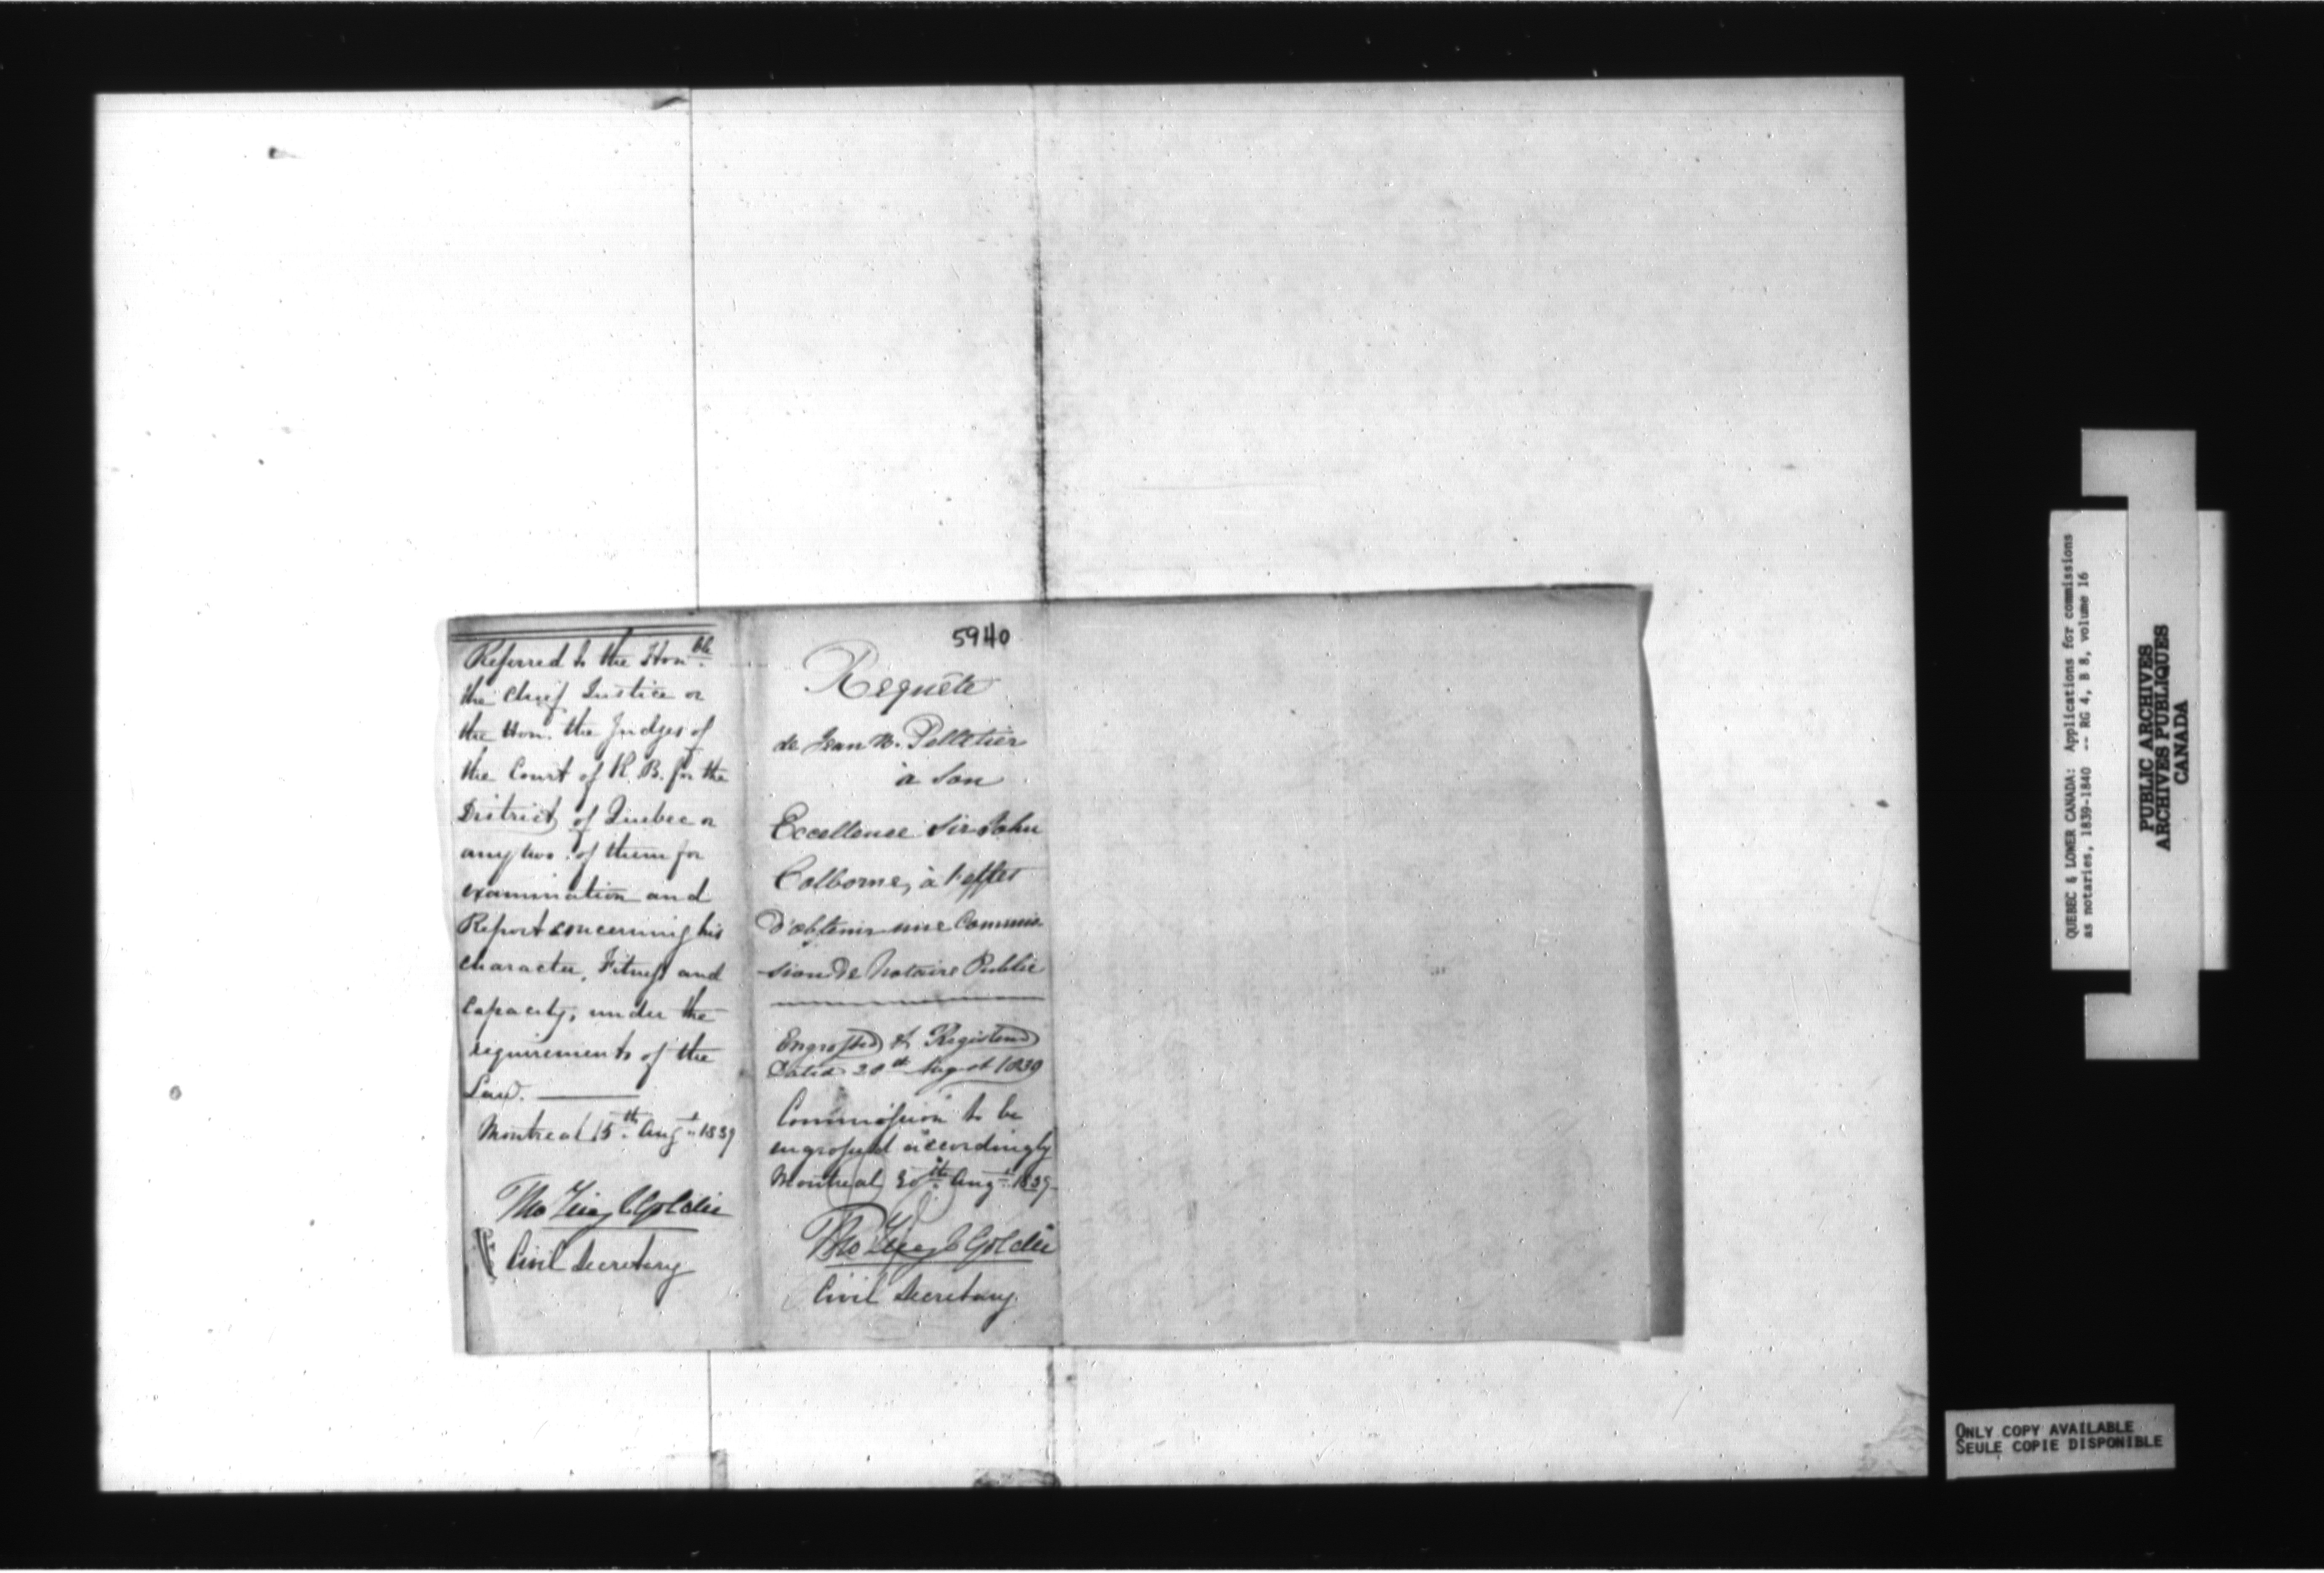 Referred to the Honble.
the Chief Justice or
the Hon. the Judges of
the Court of K. B. for the
District of Quebec or
any two of them for
examination and
Report concerning his
character, Fitness and
Capacity, under the
requirements of the
Law.
Montreal 15th Augt. 1839
Tho Leigh Goldie
Civil Secretary
5940
Requête
de Jean B. Pelletier
à Son
Excellence Sir John
Colborne, à l'effet
d'obtenir une Commis-
-sion de Notaire Public
Engrossed & Registered
Dated 30th August 1839
Commission to be
engrossed accordingly
Montreal 30th Augt. 1839
Tho Leigh Goldie
Civil Secretary
QUEBEC & LOWER CANADA: Applications for commissions
as notaries, 1839-1840 -- RG 4, B 8, volume 16
PUBLIC ARCHIVES
ARCHIVES PUBLIQUES
CANADA
ONLY COPY AVAILABLE
SEULE COPIE DISPONIBLE